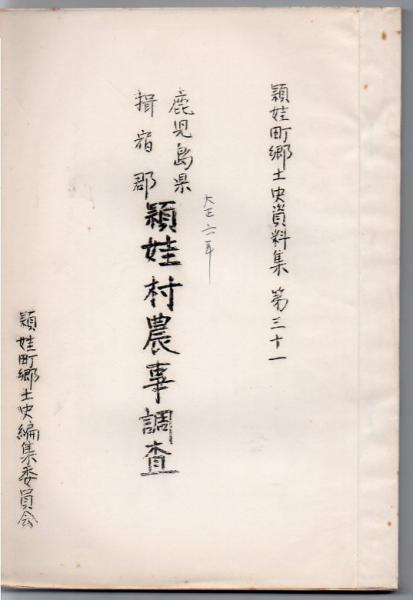 頴娃町郷土史資料集 第三十一
大正六年
鹿児島県
揖宿郡
頴娃村農事調査
頴娃町郷土史編集委員会